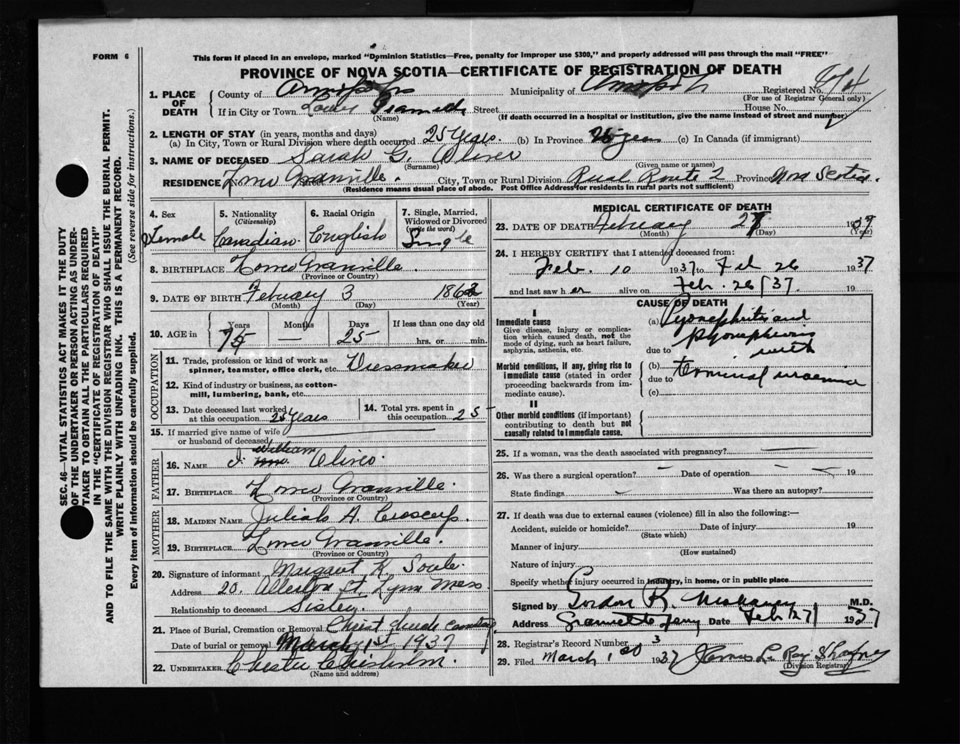 FORM 6
This form if placed in an envelope, marked "Dominion Statistics—Free, penalty for improper use $300," and properly addressed will pass through the mail "FREE"
PROVINCE OF NOVA SCOTIA—CERTIFICATE OF REGISTRATION OF DEATH
1. PLACE OF DEATH
County of Annapolis Municipality of Annapolis Registered No.
(For use of Registrar General only)
If in City or Town Lower Granville Street House No.
(Name) (If death occurred in a hospital or institution, give the name instead of street and number)
2. LENGTH OF STAY (in years, months and days)
(a) In City, Town or Rural Division where death occurred 25 years (b) In Province years (c) In Canada (if immigrant)
3. NAME OF DECEASED Sarah G. Oliver
(Surname) (Given name or names)
RESIDENCE Lower Granville. City, Town or Rural Division Rural Route 2 Province Nova Scotia.
(Residence means usual place of abode. Post Office Address for residents in rural parts not sufficient)
4. Sex Female
5. Nationality (Citizenship) Canadian
6. Racial Origin English
7. Single, Married, Widowed or Divorced (write the word) Single
8. BIRTHPLACE Lower Granville.
(Province or Country)
9. DATE OF BIRTH February 3 1862
(Month) (Day) (Year)
10. AGE in Years 75 Months — Days 25 If less than one day old hrs. or min.
OCCUPATION
11. Trade, profession or kind of work as spinner, teamster, office clerk, etc. Dressmaker
12. Kind of industry or business, as cotton-mill, lumbering, bank, etc.
13. Date deceased last worked at this occupation 25 years
14. Total yrs. spent in this occupation 25
15. If married give name of wife or husband of deceased
FATHER
16. NAME William Oliver
17. BIRTHPLACE Lower Granville.
(Province or Country)
MOTHER
18. MAIDEN NAME Juliah A. Croscup
19. BIRTHPLACE Lower Granville.
(Province or Country)
20. Signature of informant Margaret K. Soule
Address 20. Allerton St. Lynn Mass
Relationship to deceased Sister.
21. Place of Burial, Cremation or Removal Christ Church
Date of burial or removal March 1st 1937
22. UNDERTAKER Chester Chisholm.
(Name and address)
MEDICAL CERTIFICATE OF DEATH
23. DATE OF DEATH February 27 1937
(Month) (Day) (Year)
24. I HEREBY CERTIFY that I attended deceased from:
Feb. 10 1937 to Feb 26 1937
and last saw her alive on Feb. 26/37. 19
CAUSE OF DEATH
I
Immediate cause
Give disease, injury or complication which caused death, not the mode of dying, such as heart failure, asphyxia, asthenia, etc.
(a) Pyonephritis and
due to with
Morbid conditions, if any, giving rise to immediate cause (stated in order proceeding backwards from immediate cause).
(b)
due to Terminal uraemia
(c)
II
Other morbid conditions (if important) contributing to death but not causally related to immediate cause.
25. If a woman, was the death associated with pregnancy? —
26. Was there a surgical operation? — Date of operation — 19
State findings — Was there an autopsy? —
27. If death was due to external causes (violence) fill in also the following:—
Accident, suicide or homicide? Date of injury 19
(State which)
Manner of injury
(How sustained)
Nature of injury
Specify whether injury occurred in industry, in home, or in public place
Signed by Gordon R. M.D.
Address Granville Ferry Date Feb 27/ 1937
28. Registrar's Record Number 3
29. Filed March 1937 James L. Roy
(Division Registrar)
SEC. 46—VITAL STATISTICS ACT MAKES IT THE DUTY
OF THE UNDERTAKER OR PERSON ACTING AS UNDERTAKER TO OBTAIN ALL THE PARTICULARS REQUIRED
IN THE "CERTIFICATE OF REGISTRATION OF DEATH"
AND TO FILE THE SAME WITH THE DIVISION REGISTRAR WHO SHALL ISSUE THE BURIAL PERMIT.
WRITE PLAINLY WITH UNFADING INK. THIS IS A PERMANENT RECORD.
Every item of information should be carefully supplied. (See reverse side for instructions.)